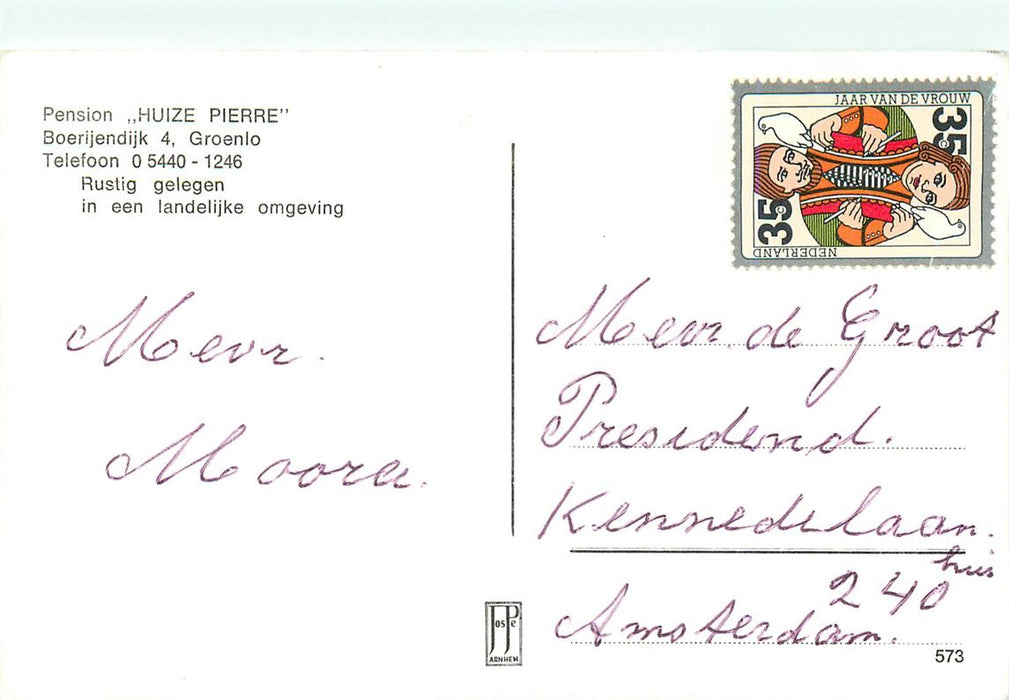 Pension ,,HUIZE PIERRE''
Boerijendijk 4, Groenlo
Telefoon 0 5440 - 1246
Rustig gelegen
in een landelijke omgeving
JAAR VAN DE VROUW
35c
35c
NEDERLAND
Mevr.
Moora.
Mevr. de Groot
Presidend.
Kennedilaan.
240 huis
Amsterdam.
JosPé
ARNHEM
573